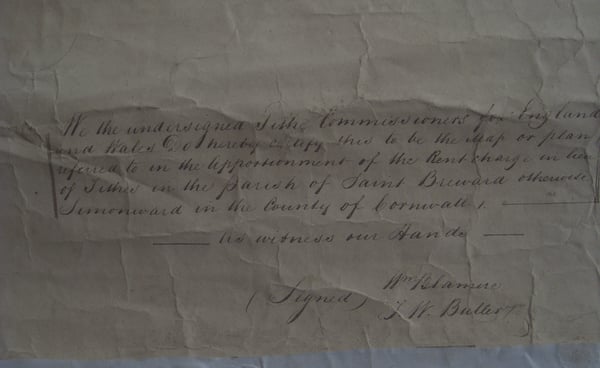 We the undersigned Tithe Commissioners for England
and Wales Do hereby certify this to be the Map or plan
referred to in the Apportionment of the Rent charge in lieu
of Tithes in the parish of Saint Breward otherwise
Simonward in the County of Cornwall.
As witness our Hands
Wm Blamire
(Signed) T. W. Buller